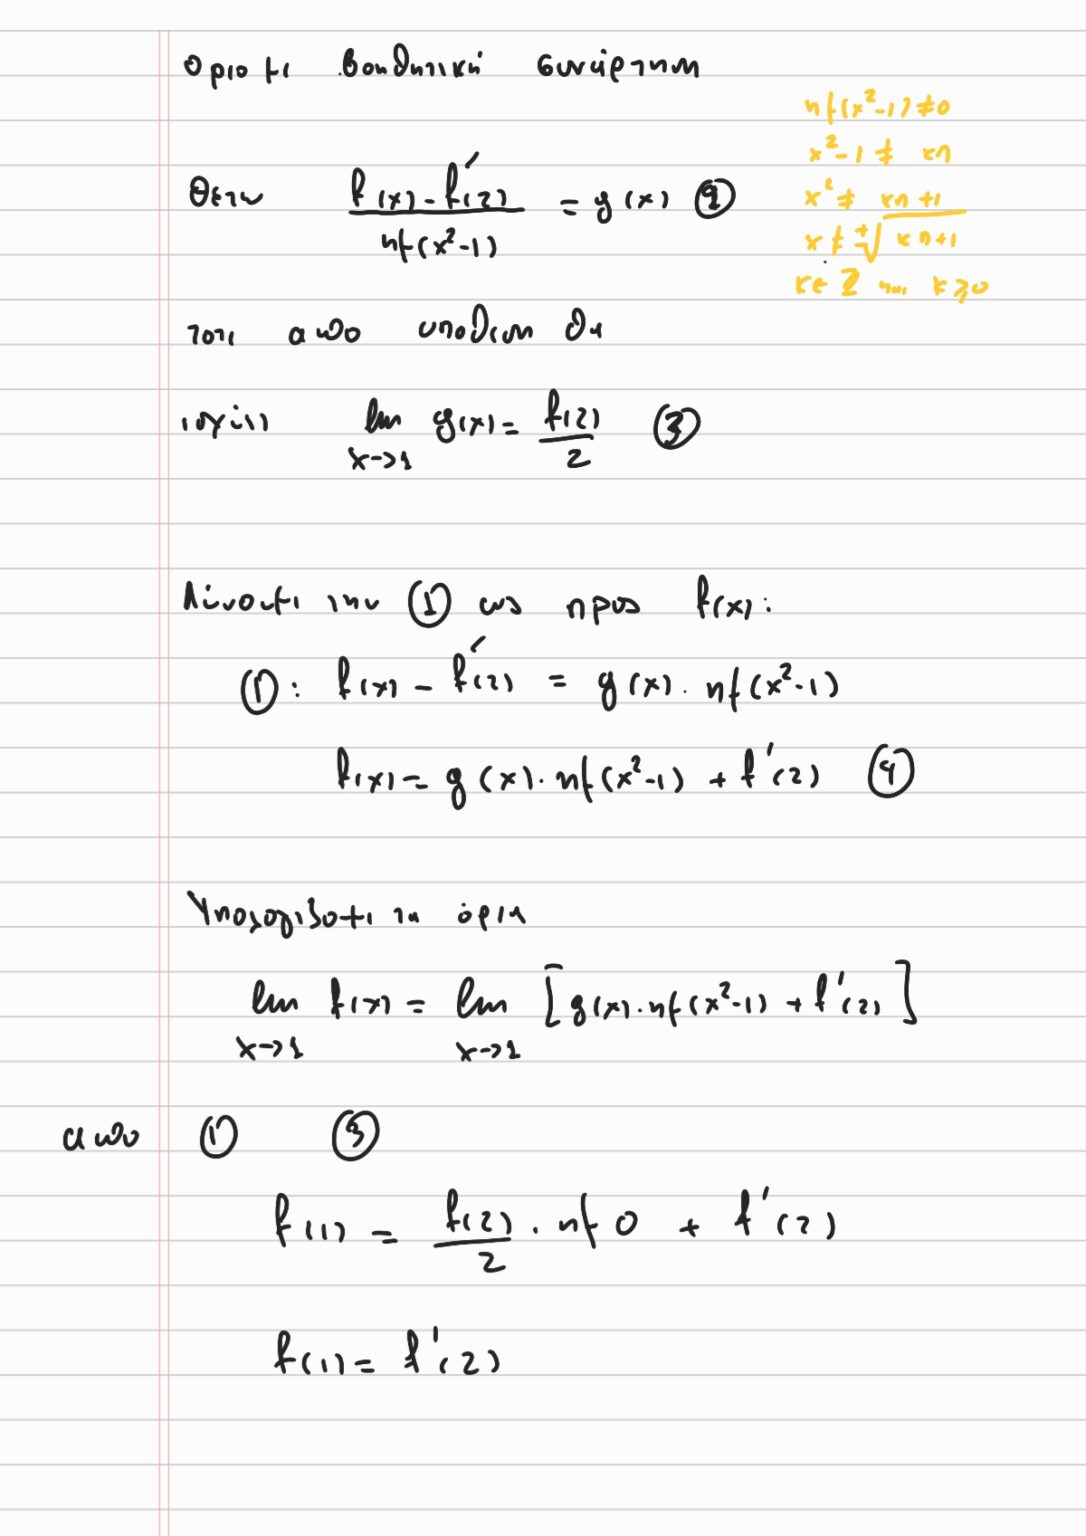 Ορίστε βοηθητική συνάρτηση
ημ(x²-1) ≠ 0
x²-1 ≠ κπ
x² ≠ κπ+1
x ≠ ±√(κπ+1)
κ ∈ Z και κ ≥ 0
Θέτω (f(x) - f'(2)) / ημ(x²-1) = g(x) ②
τότε από υπόθεση θα
ισχύει lim x→1 g(x) = f(2)/2 ③
Λύνουμε την ① ως προς f(x):
①: f(x) - f'(2) = g(x) · ημ(x²-1)
f(x) = g(x) · ημ(x²-1) + f'(2) ④
Υπολογίζουμε τα όρια
lim x→1 f(x) = lim x→1 [g(x) · ημ(x²-1) + f'(2)]
από ① ③
f(1) = f(2)/2 · ημ0 + f'(2)
f(1) = f'(2)